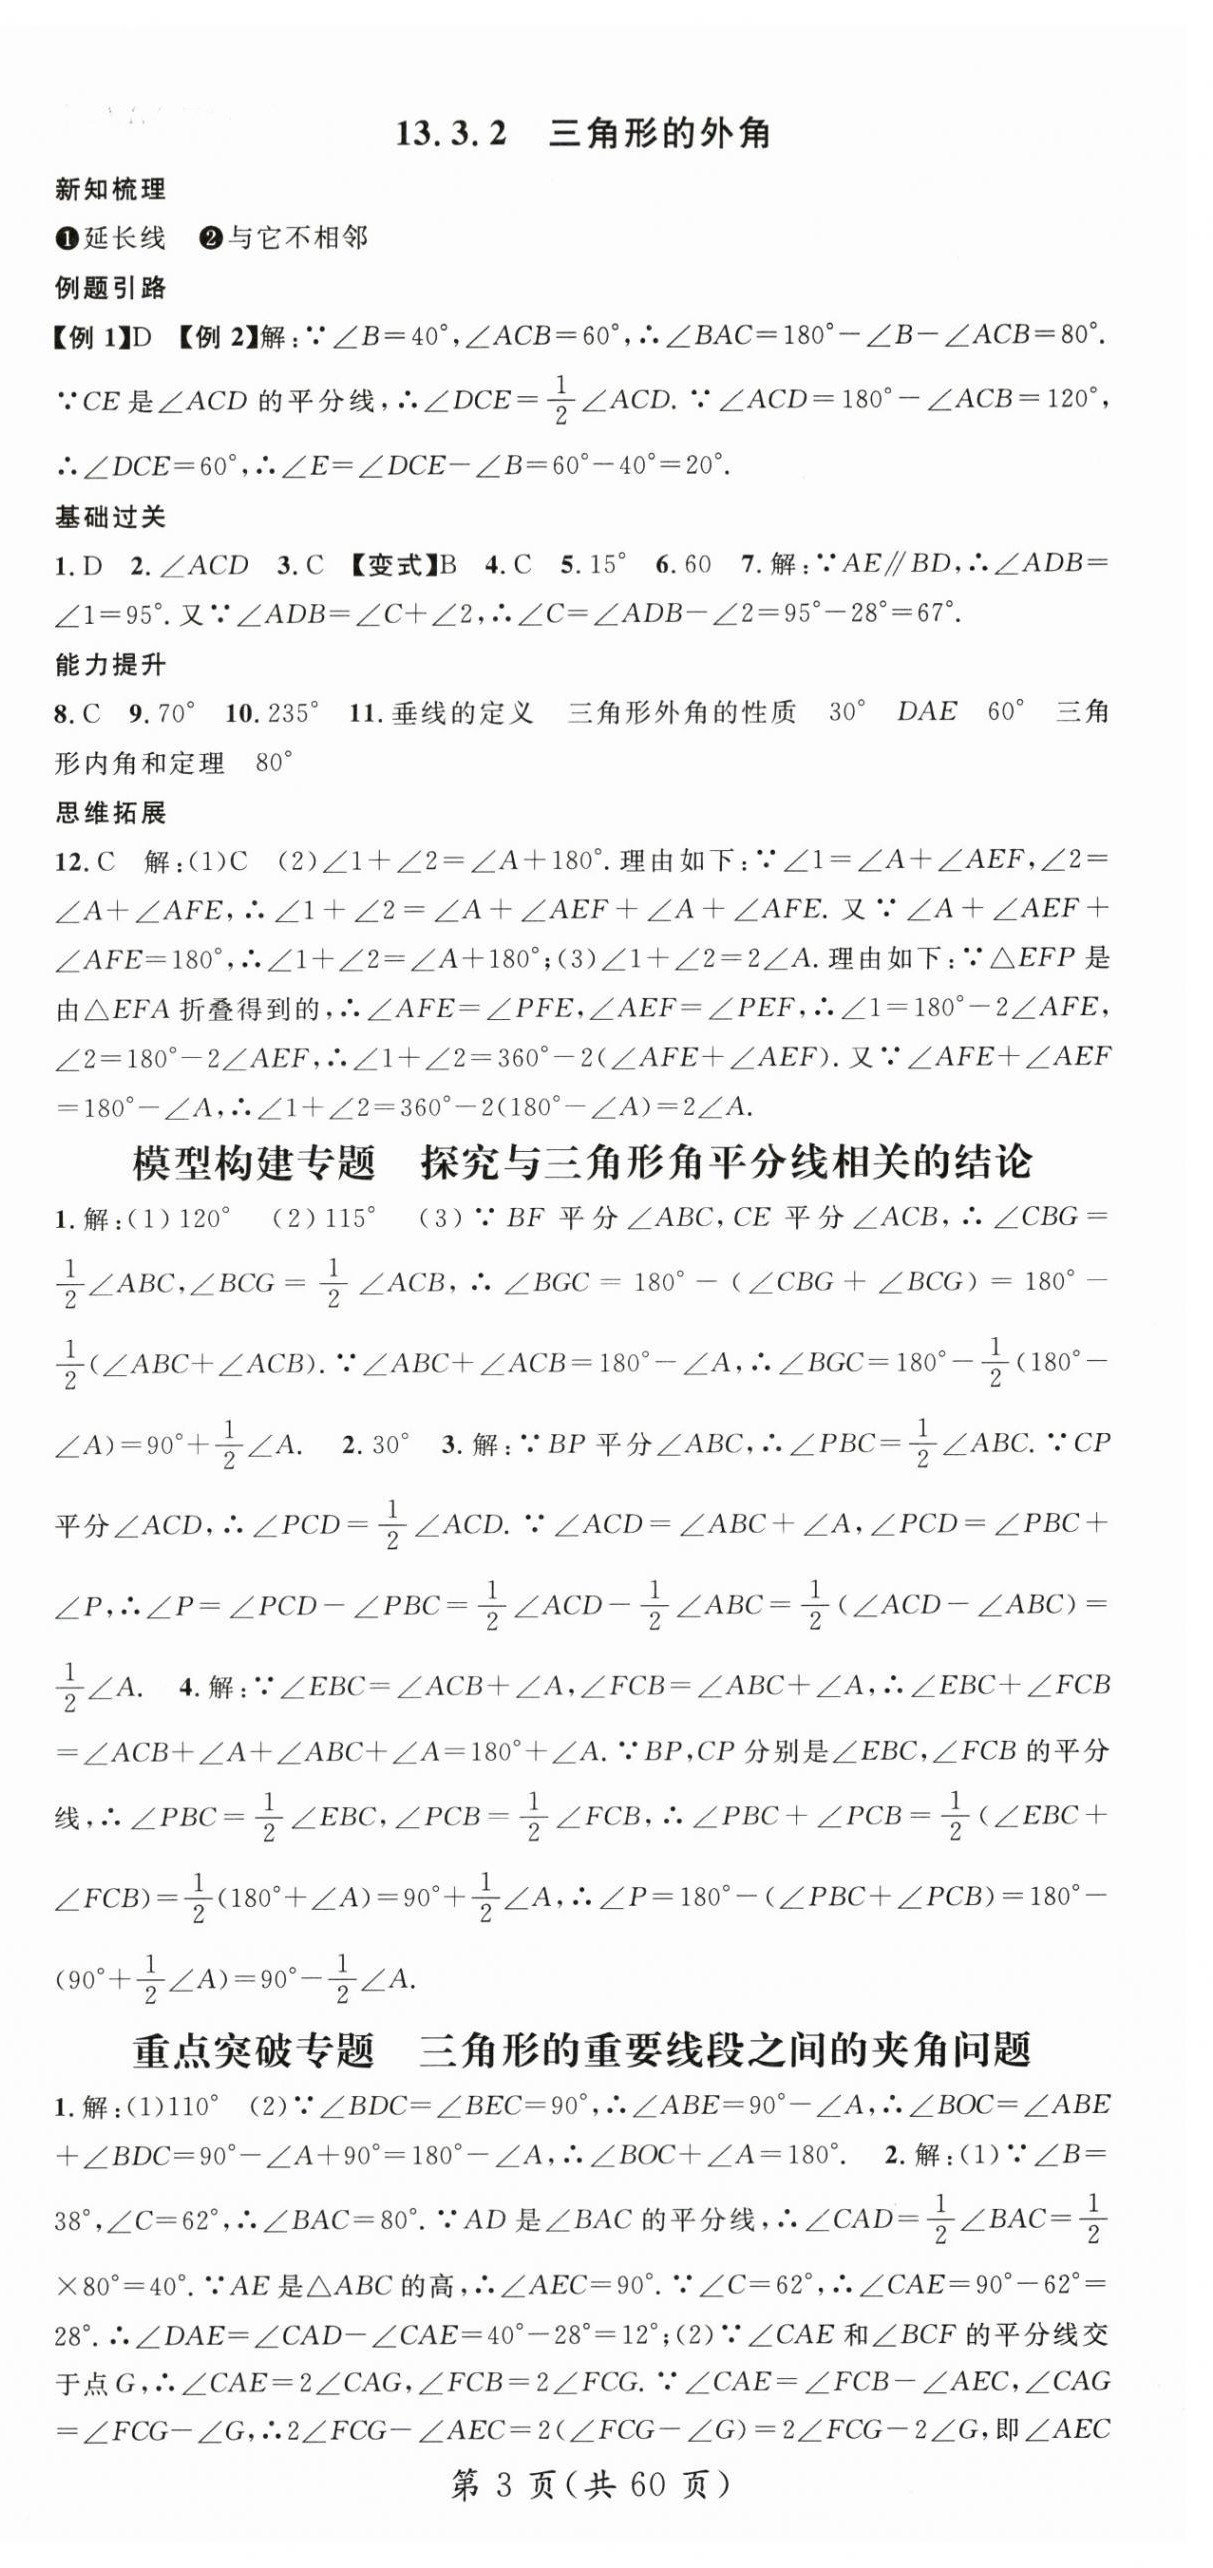 13.3.2 三角形的外角
新知梳理
❶延长线 ❷与它不相邻
例题引路
【例 1】D 【例 2】解:∵∠B=40°,∠ACB=60°,∴∠BAC=180°-∠B-∠ACB=80°.
∵CE 是∠ACD 的平分线,∴∠DCE=1/2∠ACD. ∵∠ACD=180°-∠ACB=120°,
∴∠DCE=60°,∴∠E=∠DCE-∠B=60°-40°=20°.
基础过关
1. D 2. ∠ACD 3. C 【变式】B 4. C 5. 15° 6. 60 7. 解:∵AE∥BD,∴∠ADB=
∠1=95°. 又∵∠ADB=∠C+∠2,∴∠C=∠ADB-∠2=95°-28°=67°.
能力提升
8. C 9. 70° 10. 235° 11. 垂线的定义 三角形外角的性质 30° DAE 60° 三角
形内角和定理 80°
思维拓展
12. C 解:(1)C (2)∠1+∠2=∠A+180°. 理由如下:∵∠1=∠A+∠AEF,∠2=
∠A+∠AFE,∴∠1+∠2=∠A+∠AEF+∠A+∠AFE. 又∵∠A+∠AEF+
∠AFE=180°,∴∠1+∠2=∠A+180°;(3)∠1+∠2=2∠A. 理由如下:∵△EFP 是
由△EFA 折叠得到的,∴∠AFE=∠PFE,∠AEF=∠PEF,∴∠1=180°-2∠AFE,
∠2=180°-2∠AEF,∴∠1+∠2=360°-2(∠AFE+∠AEF). 又∵∠AFE+∠AEF
=180°-∠A,∴∠1+∠2=360°-2(180°-∠A)=2∠A.
模型构建专题 探究与三角形角平分线相关的结论
1. 解:(1)120° (2)115° (3)∵BF 平分∠ABC,CE 平分∠ACB,∴∠CBG=
1/2∠ABC,∠BCG=1/2∠ACB,∴∠BGC=180°-(∠CBG+∠BCG)=180°-
1/2(∠ABC+∠ACB). ∵∠ABC+∠ACB=180°-∠A,∴∠BGC=180°-1/2(180°-
∠A)=90°+1/2∠A. 2. 30° 3. 解:∵BP 平分∠ABC,∴∠PBC=1/2∠ABC. ∵CP
平分∠ACD,∴∠PCD=1/2∠ACD. ∵∠ACD=∠ABC+∠A,∠PCD=∠PBC+
∠P,∴∠P=∠PCD-∠PBC=1/2∠ACD-1/2∠ABC=1/2(∠ACD-∠ABC)=
1/2∠A. 4. 解:∵∠EBC=∠ACB+∠A,∠FCB=∠ABC+∠A,∴∠EBC+∠FCB
=∠ACB+∠A+∠ABC+∠A=180°+∠A. ∵BP,CP 分别是∠EBC,∠FCB 的平分
线,∴∠PBC=1/2∠EBC,∠PCB=1/2∠FCB,∴∠PBC+∠PCB=1/2(∠EBC+
∠FCB)=1/2(180°+∠A)=90°+1/2∠A,∴∠P=180°-(∠PBC+∠PCB)=180°-
(90°+1/2∠A)=90°-1/2∠A.
重点突破专题 三角形的重要线段之间的夹角问题
1. 解:(1)110° (2)∵∠BDC=∠BEC=90°,∴∠ABE=90°-∠A,∴∠BOC=∠ABE
+∠BDC=90°-∠A+90°=180°-∠A,∴∠BOC+∠A=180°. 2. 解:(1)∵∠B=
38°,∠C=62°,∴∠BAC=80°. ∵AD 是∠BAC 的平分线,∴∠CAD=1/2∠BAC=1/2
×80°=40°. ∵AE 是△ABC 的高,∴∠AEC=90°. ∵∠C=62°,∴∠CAE=90°-62°=
28°. ∴∠DAE=∠CAD-∠CAE=40°-28°=12°;(2)∵∠CAE 和∠BCF 的平分线交
于点 G,∴∠CAE=2∠CAG,∠FCB=2∠FCG. ∵∠CAE=∠FCB-∠AEC,∠CAG
=∠FCG-∠G,∴2∠FCG-∠AEC=2(∠FCG-∠G)=2∠FCG-2∠G,即∠AEC
第 3 页(共 60 页)